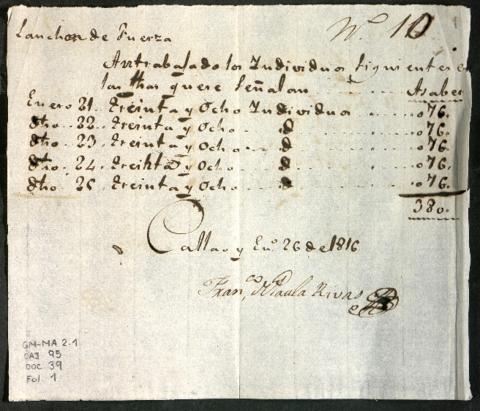 Lanchon de Fuerza
Nº 10
An trabajado los Individuos siguientes en
los dias que se señalan Asaber
Enero 21. treinta y Ocho Individuos 076.
dho .. 22. treinta y Ocho. d 076.
dho .. 23. treinta y Ocho d 076.
dho .. 24. treinta y Ocho d 076.
dho .. 26. treinta y Ocho d 076.
380.
Callao y Enº. 26 de 1816
Franco. de Paula Rivas
GM-MA 2.1
CAJ 95
DOC 39
Fol. 1